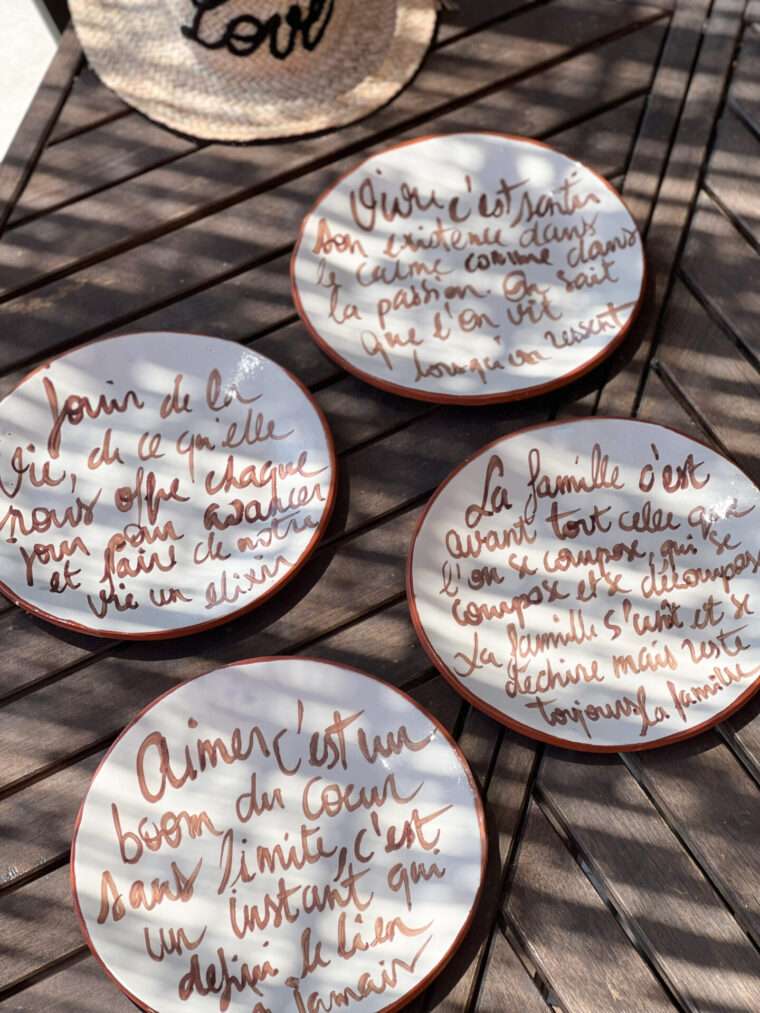 Love
Vivre c'est sentir
son existence dans
le calme comme dans
la passion. On sait
que l'on vit
lorsqu'on ressent
Jouir de la
vie, de ce qu'elle
nous offre chaque
jour pour avancer
et faire de notre
vie un elixir
La famille c'est
avant tout celle que
l'on se compose, qui se
compose et se décompose
La famille s'unit et se
déchire mais reste
toujours la famille
Aimer c'est un
boom du coeur
sans limite, c'est
un instant qui
défini le lien
à jamais